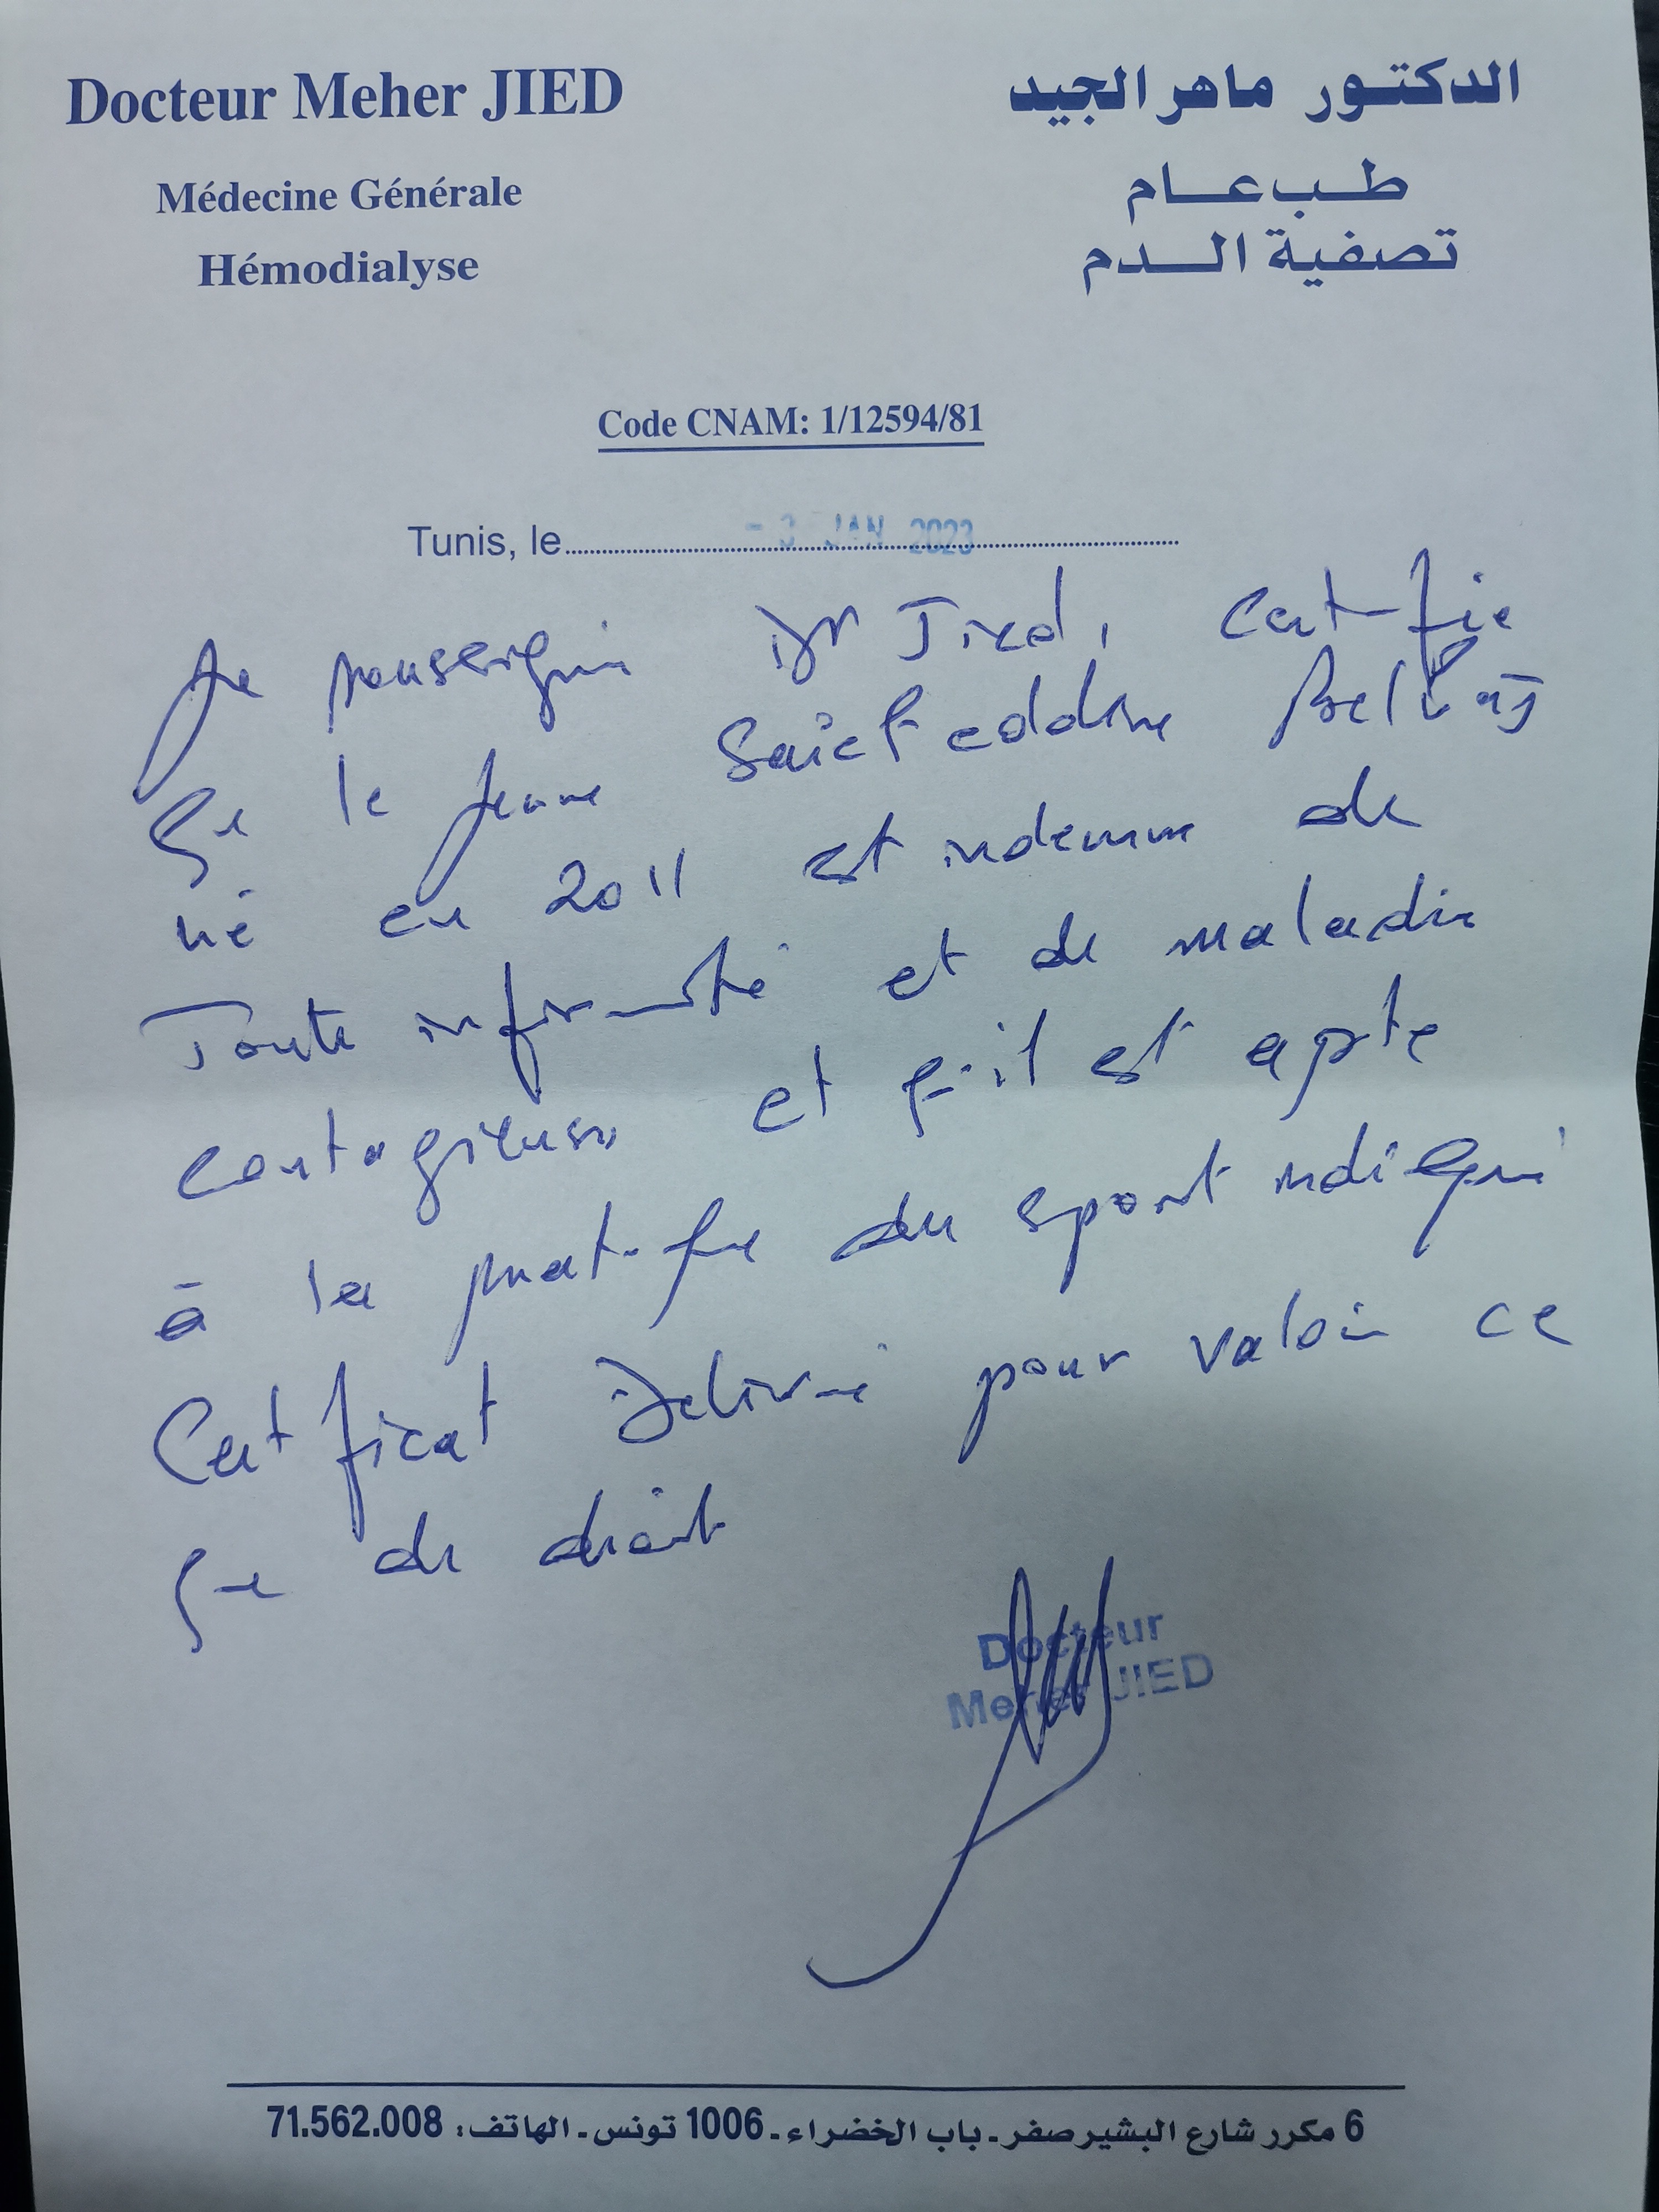 Docteur Meher JIED
Médecine Générale
Hémodialyse
الدكتور ماهر الجيد
طب عام
تصفية الدم
Code CNAM: 1/12594/81
Tunis, le - 3 JAN 2023
Je soussigné Dr Jied, certifie
que le jeune Saief eddine Belhaj
né en 2011 est indemne de
Toute infirmité et de maladie
contagieuse et qu'il est apte
à la pratique du sport indiqué
Certificat Délivré pour valoir ce
que de droit
Docteur
Meher JIED
6 مكرر شارع البشير صفر - باب الخضراء - 1006 تونس - الهاتف: 71.562.008